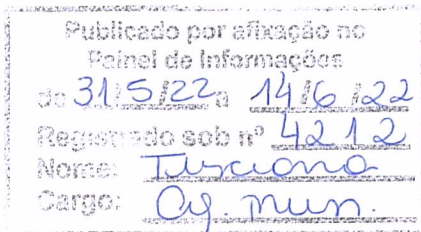 Publicado por afixação no
Painel de Informações
de 31/5/22 a 14/6/22
Registrado sob nº 4212
Nome:
Cargo: Ag. mun.